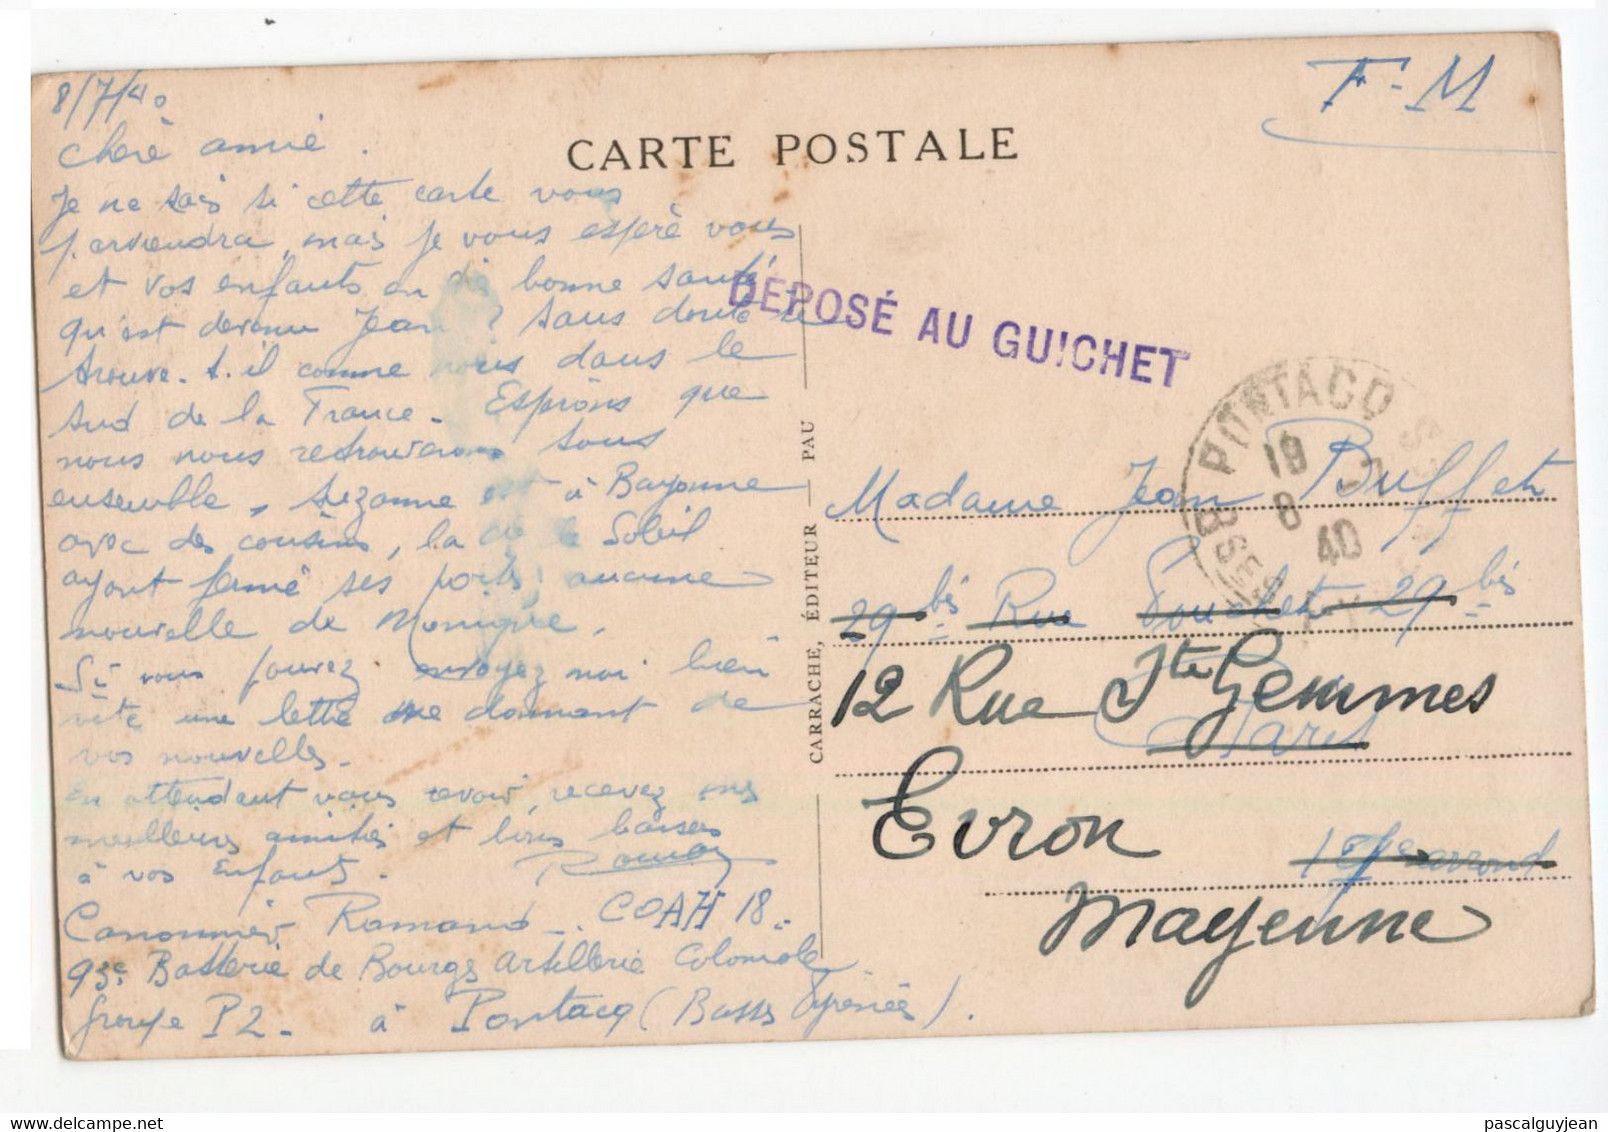 8/7/40
F-M
CARTE POSTALE
chère amie.
Je ne sais si cette carte vous
parviendra, mais je vous espère vous
et vos enfants en bonne santé
qu'est devenu Jean ? Sans doute se
trouve-t-il comme nous dans le
sud de la France. Espérons que
nous nous retrouverons tous
ensemble, Suzanne est à Bayonne
avec des cousins, la Soleil
ayant fermé ses portes, aucune
nouvelle de Monique.
Si vous pouvez envoyez moi bien
vite une lettre me donnant de
vos nouvelles.
En attendant vous revoir, recevez mes
meilleurs amitiés et bons baisers
à vos enfants.
Canonnier Romand - COAH 18.
93e Batterie de Bourgs artillerie Coloniale
groupe P2 - à Pontacq (Basses Pyrénées).
DÉPOSÉ AU GUICHET
PONTACQ
18
8 -7
40
BSES
CARRACHE, ÉDITEUR — PAU
Madame Jean Buffet
29 bis Rue Pouchet 29 bis
12 Rue Ste Gemmes
Paris
Evron
arrond
Mayenne
pascalguyjean
delcampe.net